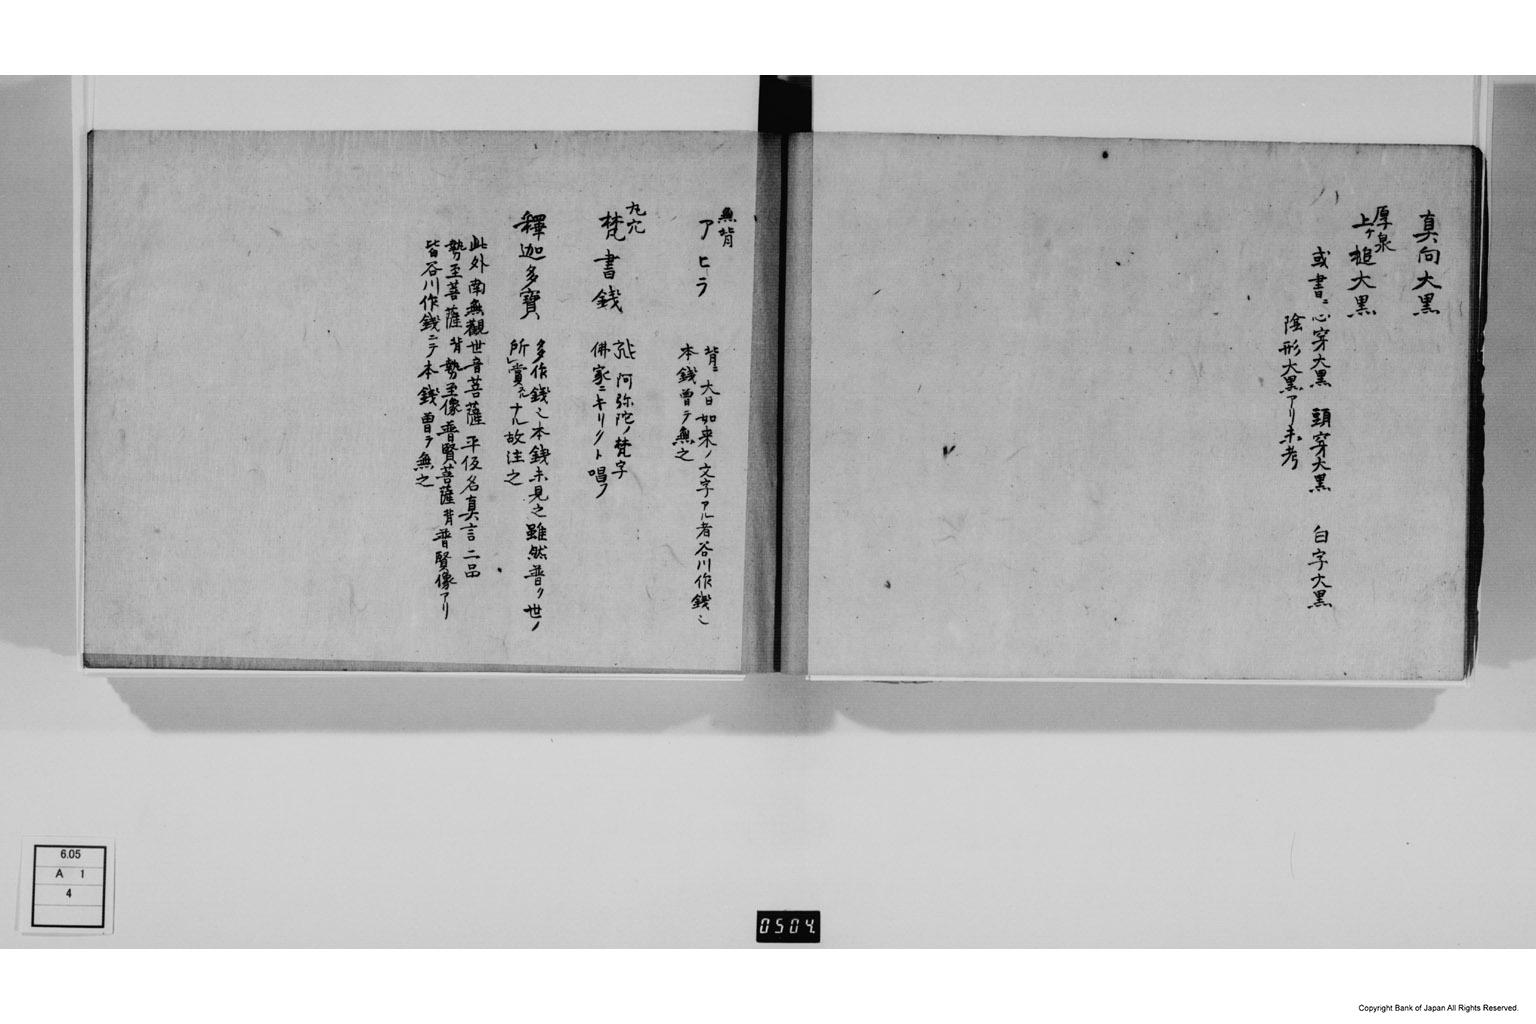 真向大黒
厚泉
上ヶ槌大黒
或書ニ心穿大黒 頭穿大黒 白字大黒
陰形大黒アリ未考
無背
アヒラ
背ニ大日如来ノ文字アル者谷川作銭也
本銭曽テ無之
丸穴
梵書銭
阿弥陀ノ梵字
佛家ニキリクト唱フ
釋迦多寶
多作銭也本銭未見之雖然普ク世ノ
所賞ナル故注之
此外南無觀世音菩薩平仮名真言二品
勢至菩薩背勢至像普賢菩薩背普賢像アリ
皆谷川作銭ニテ本銭曽テ無之
6.05
A 1
4
0504
Copyright Bank of Japan All Rights Reserved.